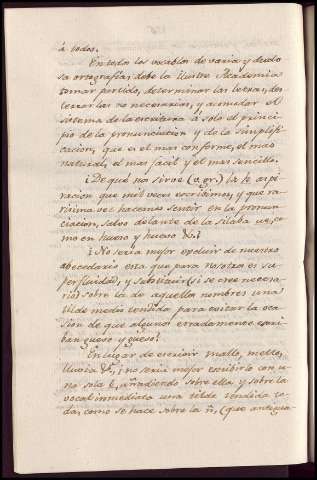 á todos.
En todos los vocablos de varia y dudo
sa ortografía, debe la ilustre Academia
tomar partido, determinar las letras, des
terrar las no necesarias, y acomodar el
sistema de la escritura á solo el princi
pio de la pronunciacion y de la simplifi
cacion, que es el mas conforme, el mas
natural, el mas facil y el mas sencillo.
¿De qué nos sirve (v. gr.) la h aspi
racion que mil veces escribimos, y que ra
risima vez hacemos sentir en la pronun
ciacion, salvo delante de la silaba ue, co
mo en huevo y hueso &c?
¿No seria mejor excluir de nuestro
abecedario esta que para nosotros es su
perfluidad, y substituir (si se cree necesa
rio) sobre la de aquellos nombres una
tilde medio tendida para evitar la oca
sion de que algunos erradamente escri
ban gueso y gueso?
En lugar de escribir mallo, mello,
lluvia &c, ¿no seria mejor escribirlo con u
na sola l, añadiendo sobre ella y sobre la
vocal inmediata una tilde tendida to
da, como se hace sobre la ñ, (que antigua-